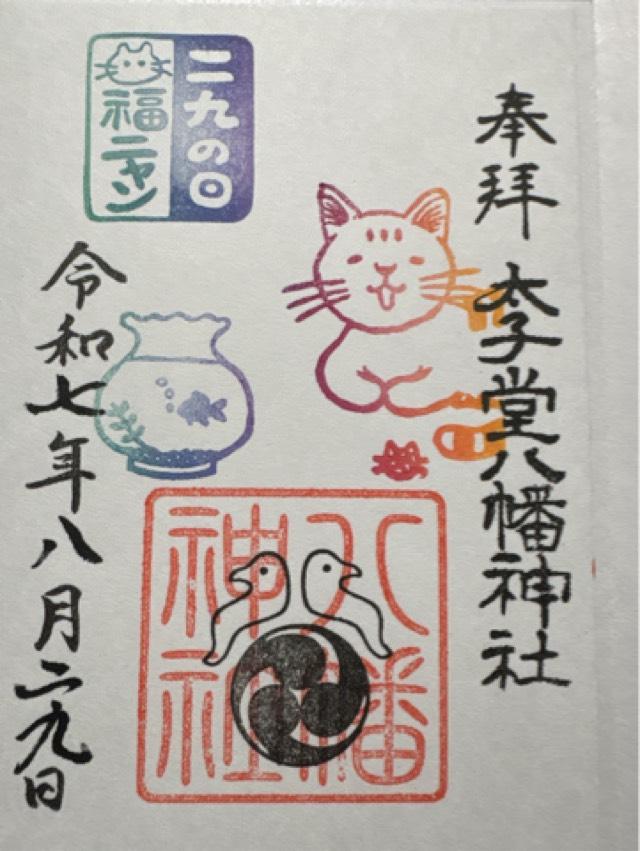 奉拝
太子堂八幡神社
二九の日
福ニャン
八幡
神社
令和七年八月二九日